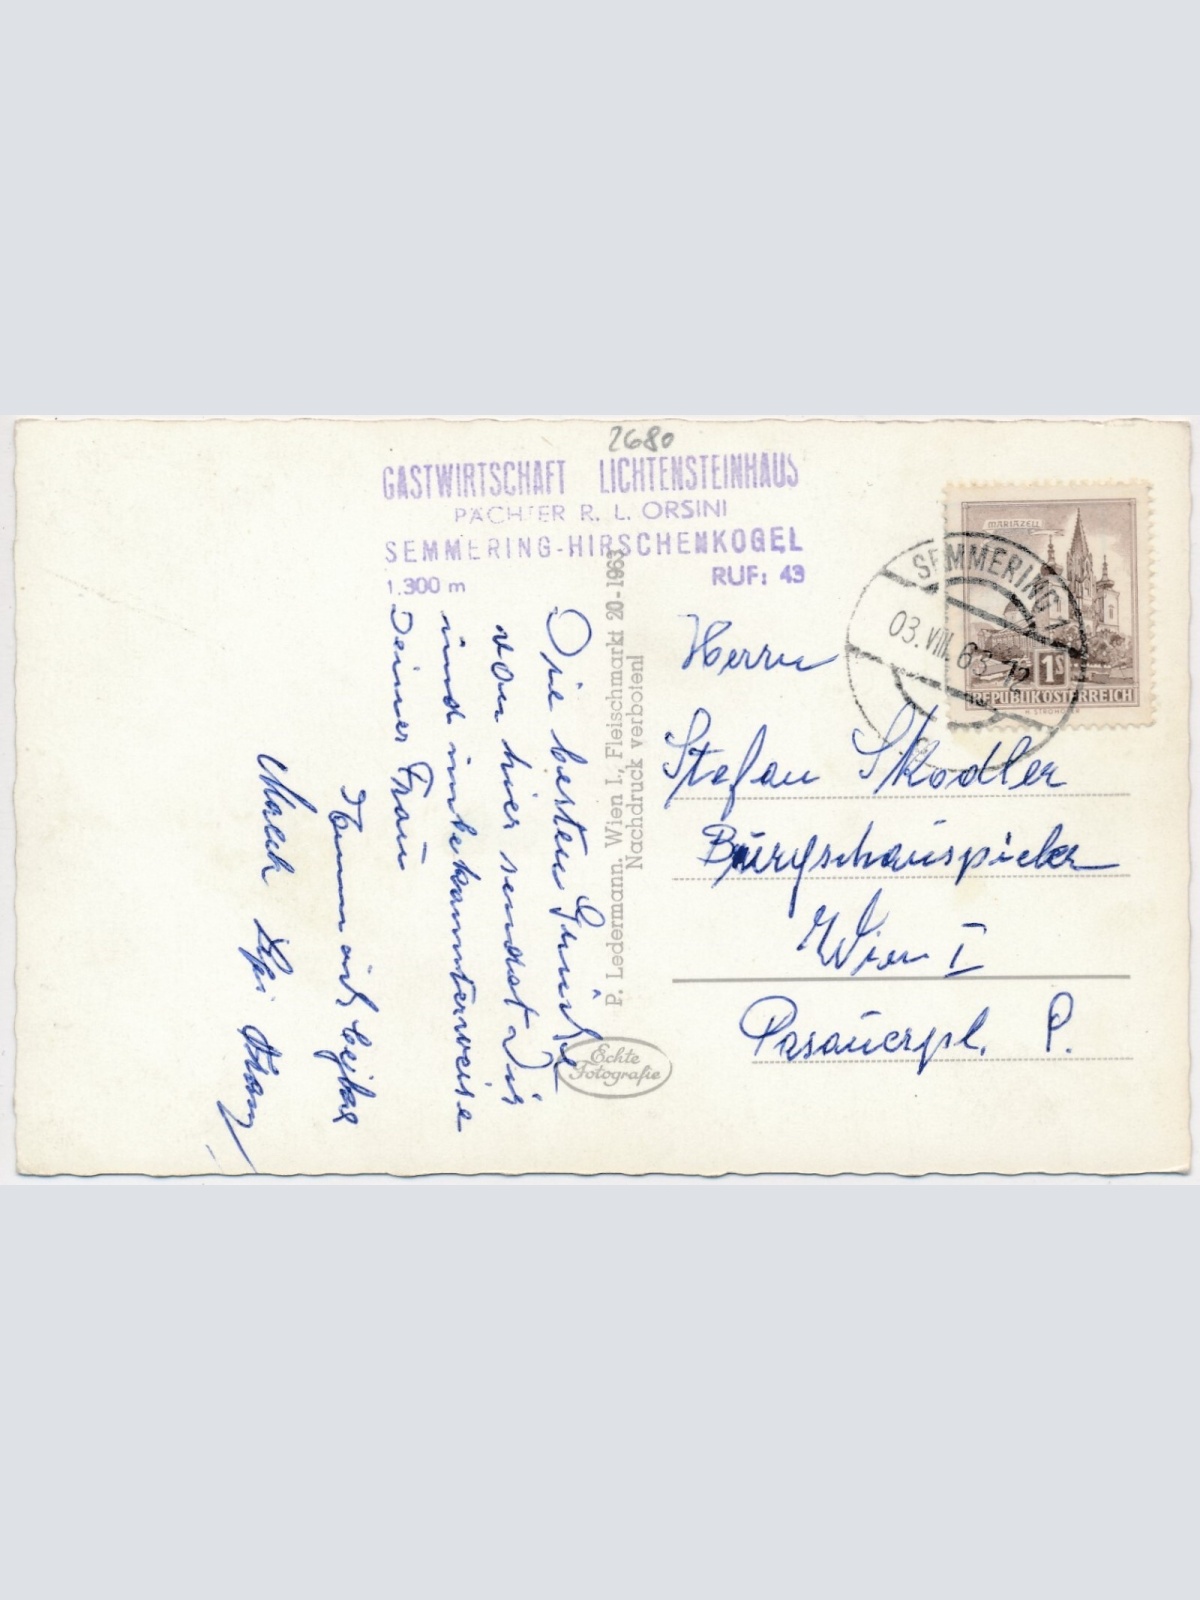 2680
GASTWIRTSCHAFT LICHTENSTEINHAUS
PÄCHTER R. L. ORSINI
SEMMERING-HIRSCHENKOGEL
1.300 m RUF: 43
Die besten Grüße
von hier sendet Dir
und unbekannterweise
Deiner Frau
P. Ledermann, Wien I., Fleischmarkt 20-1963
Nachdruck verboten!
Echte
Fotografie
MARIAZELL
1S
REPUBLIK ÖSTERREICH
SEMMERING 1
03.VIII.63-12
Herrn
Stefan Skodler
Burgschauspieler
Wien I
Pasauerpl. P.